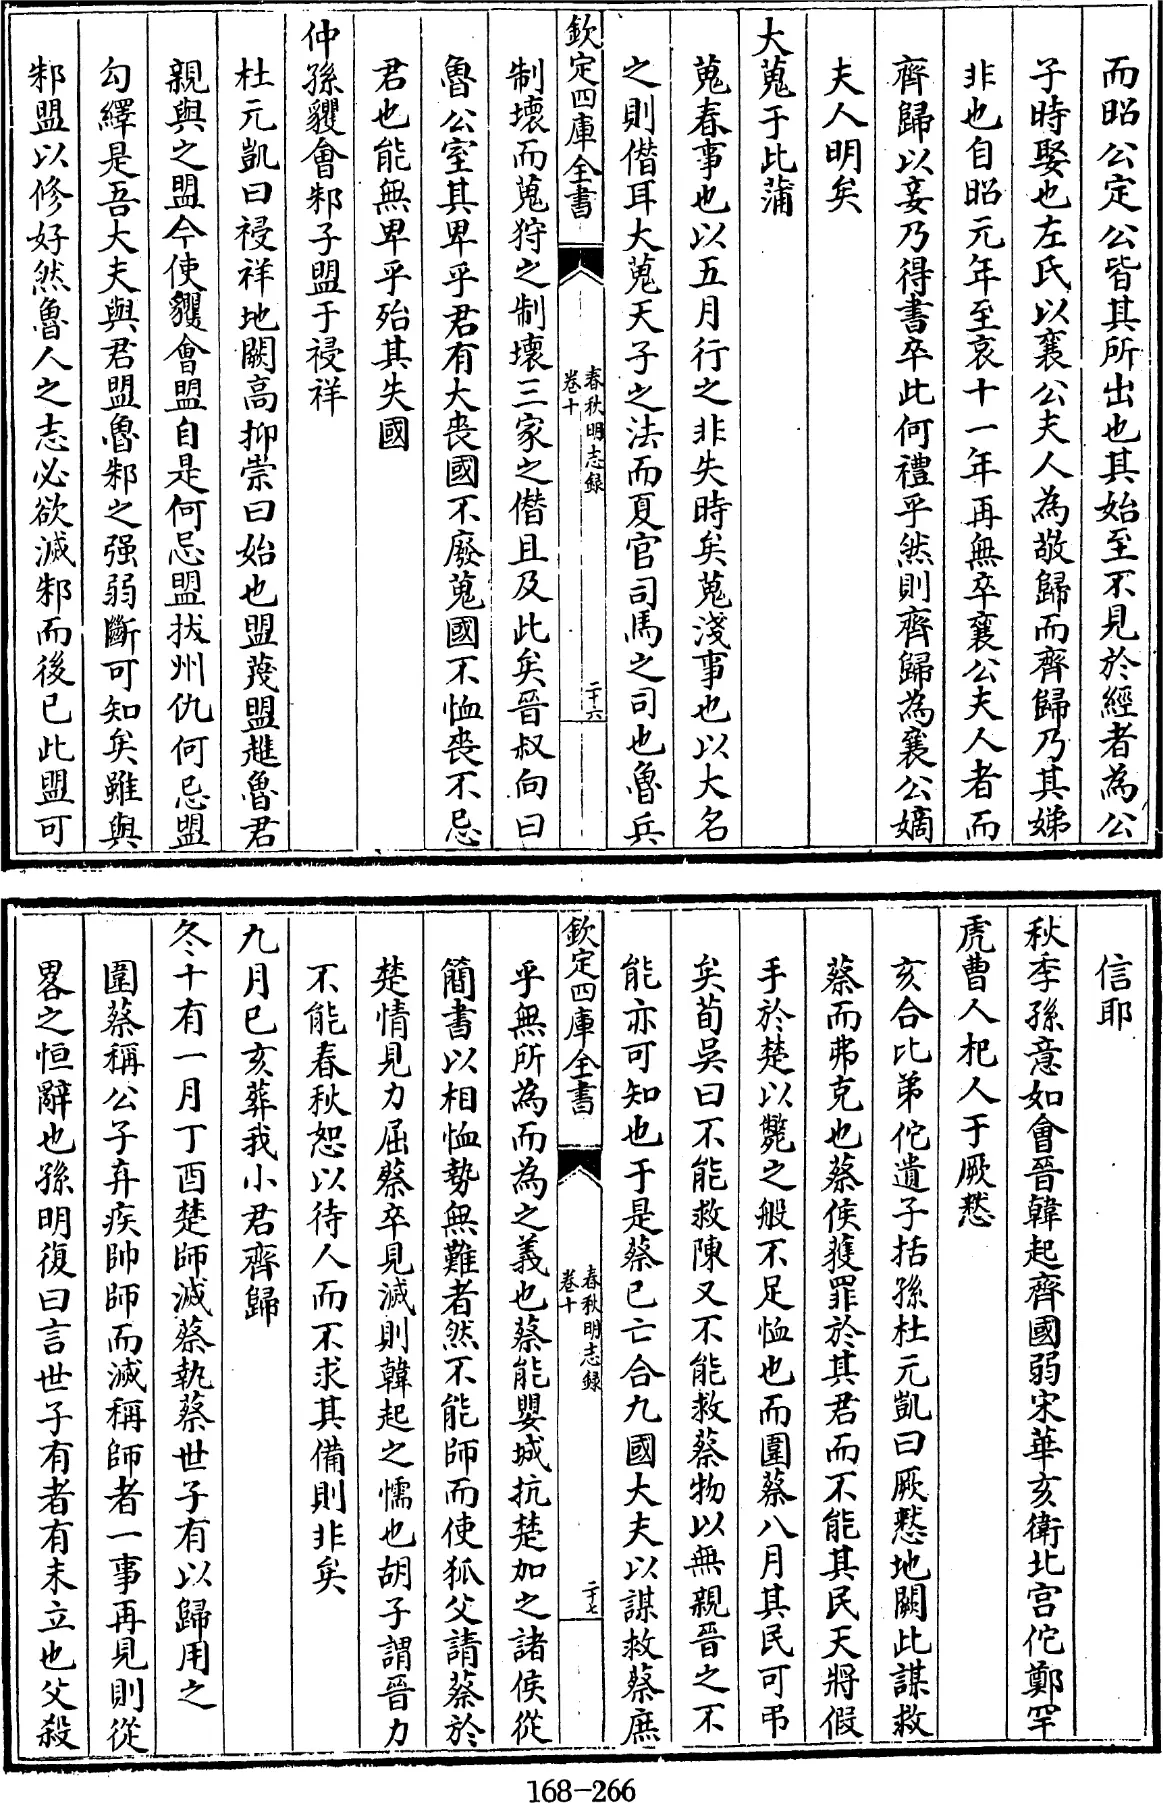 而昭公定公皆其所出也其始至不見於經者為公
子時娶也左氏以襄公夫人為敬歸而齊歸乃其娣
非也自昭元年至哀十一年再無卒襄公夫人者而
齊歸以妾乃得書卒此何禮乎然則齊歸為襄公嫡
夫人明矣
大蒐于比蒲
蒐春事也以五月行之非失時矣蒐淺事也以大名
之則僣耳大蒐天子之法而夏官司馬之司也魯兵
欽定四庫全書
春秋明志録
卷十
二十六
制壊而蒐狩之制壊三家之僣且及此矣晉叔向曰
魯公室其卑乎君有大喪國不廢蒐國不恤喪不忌
君也能無卑乎殆其失國
仲孫貜會邾子盟于祲祥
杜元凱曰祲祥地闕高抑崇曰始也盟蔑盟趡魯君
親與之盟今使貜會盟自是何忌盟拔州仇何忌盟
勾繹是吾大夫與君盟魯邾之强弱斷可知矣雖與
邾盟以修好然魯人之志必欲滅邾而後已此盟可
信耶
秋季孫意如會晉韓起齊國弱宋華亥衛北宫佗鄭罕
虎曹人杞人于厥憖
亥合比弟佗遺子括孫杜元凱曰厥憖地闕此謀救
蔡而弗克也蔡侯獲罪於其君而不能其民天將假
手於楚以斃之般不足恤也而圍蔡八月其民可弔
矣荀吳曰不能救陳又不能救蔡物以無親晉之不
能亦可知也于是蔡已亡合九國大夫以謀救蔡庶
欽定四庫全書
春秋明志録
卷十
二十七
乎無所為而為之義也蔡能嬰城抗楚加之諸侯從
簡書以相恤勢無難者然不能師而使狐父請蔡於
楚情見力屈蔡卒見滅則韓起之懦也胡子謂晉力
不能春秋恕以待人而不求其備則非矣
九月已亥葬我小君齊歸
冬十有一月丁酉楚師滅蔡執蔡世子有以歸用之
圍蔡稱公子弃疾帥師而滅稱師者一事再見則從
畧之恒辭也孫明復曰言世子有者有未立也父殺
168-266